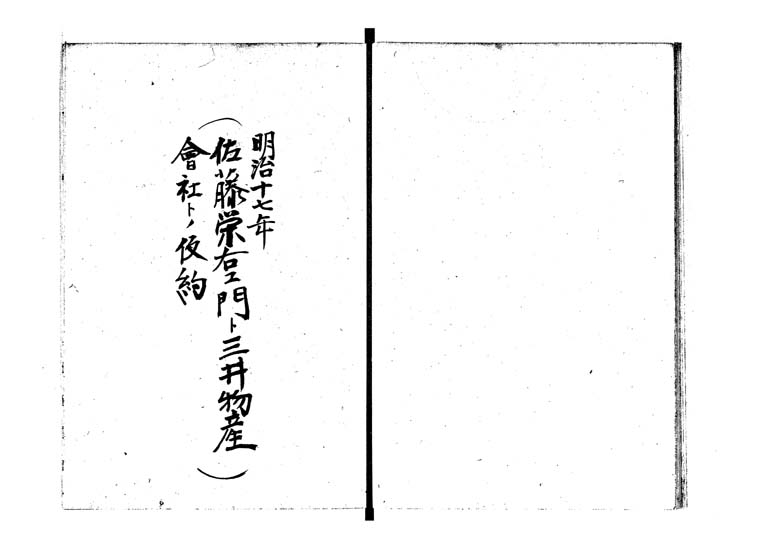 明治十七年
(佐藤栄右エ門ト三井物産)
會社トノ仮約